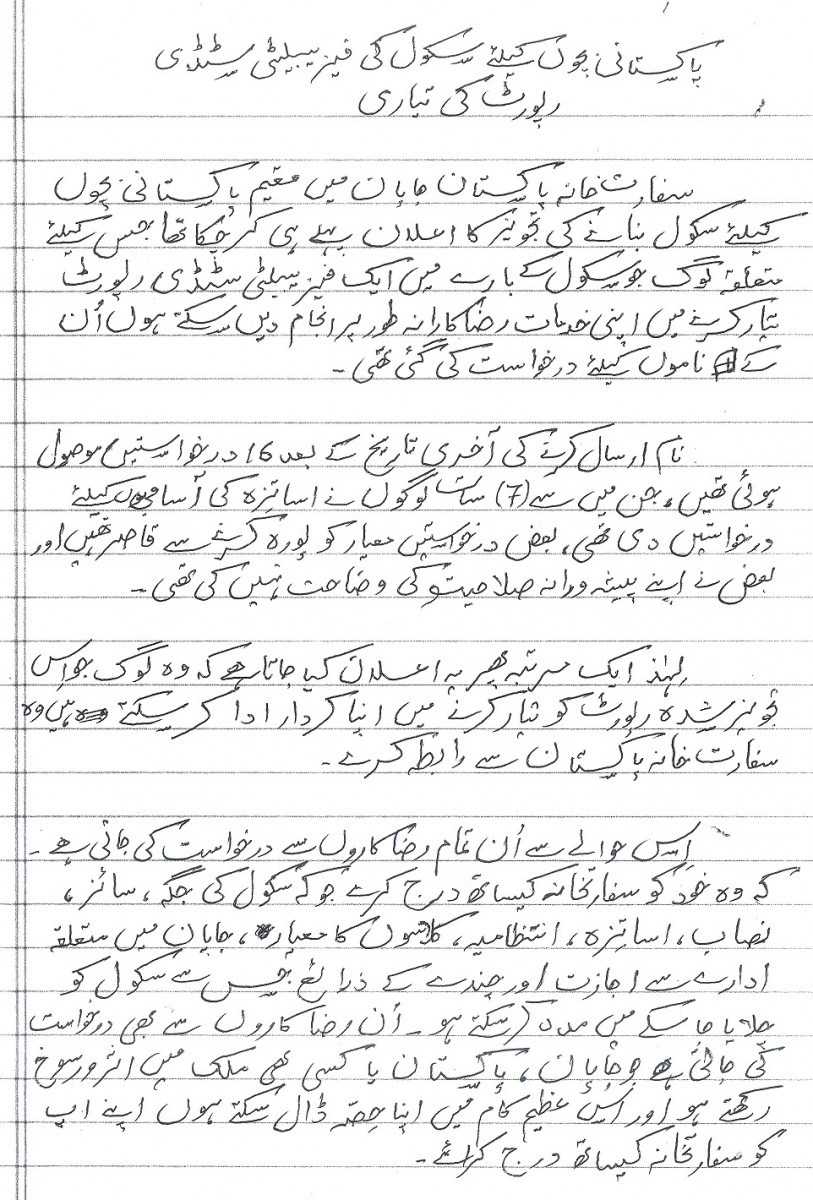 پاکستانی بچوں کیلئے سکول کی فیزیبیلیٹی سٹڈی
رپورٹ کی تیاری
سفارت خانہ پاکستان جاپان میں مقیم پاکستانی بچوں
کیلئے سکول بنانے کی تجویز کا اعلان پہلے ہی کرچکا تھا جس کیلئے
متعلقہ لوگ جو سکول کے بارے میں ایک فیزیبیلیٹی سٹڈی رپورٹ
تیار کرنے میں اپنی خدمات رضا کارانہ طور پر انجام دیں سکتے ہوں اُن
کے ناموں کیلئے درخواست کی گئی تھی۔
نام ارسال کرنے کی آخری تاریخ کے بعد 16 درخواستیں موصول
ہوئی تھیں، جن میں سے (7) سات لوگوں نے اساتزہ کی آسامیوں کیلئے
درخواستیں دی تھی، بعض درخواستیں معیار کو پورہ کرنے سے قاصر تھیں اور
بعض نے اپنے پیشہ ورانہ صلاحیتو کی وضاحت نہیں کی تھی۔
لہٰذ ایک مرتبہ پھر یہ اعلان کیا جاتا ہے کہ وہ لوگ جو اِس
تجویز شدہ رپورٹ کو تیار کرنے میں اپنا کردار ادا کر سکتے ہیں وہ
سفارت خانہ پاکستان سے رابطہ کرے۔
اِس حوالے سے اُن تمام رضا کاروں سے درخواست کی جاتی ہے۔
کہ وہ خود کو سفارتخانہ کیساتھ درج کرے جو کہ سکول کی جگہ، سائز،
نصاب، اساتزہ، انتظامیہ، کلاسوں کا معیار، جاپان میں متعلقہ
ادارے سے اجازت اور چندے کے ذرائع جس سے سکول کو
چلایا جا سکے میں مدد کرسکتے ہو۔ اُن رضا کاروں سے بھی درخواست
کی جاتی ہے جو جاپان، پاکستان یا کسی بھی ملک میں اثر و رسوخ
رکھتے ہو اور اس عظیم کام میں اپنا حِصّہ ڈال سکتے ہوں اپنے اپ
کو سفارتخانہ کیساتھ درج کرائے۔